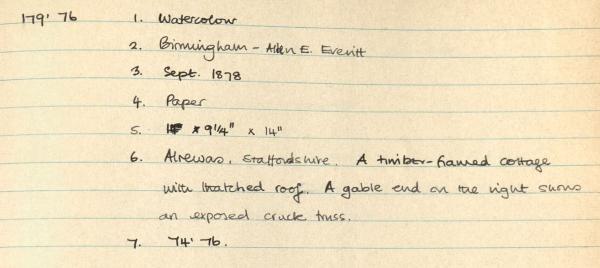 179' 76 1. Watercolour
2. Birmingham - Allen E. Everitt
3. Sept. 1878
4. Paper
5. x 9 1/4" x 14"
6. Alrewas, Staffordshire. A timber-framed cottage
with thatched roof. A gable end on the right shows
an exposed cruck truss.
7. 74' 76.